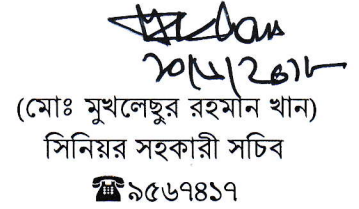 (মোঃ মুখলেছুর রহমান খান)
সিনিয়র সহকারী সচিব
☎৯৫৬৭৪১৭